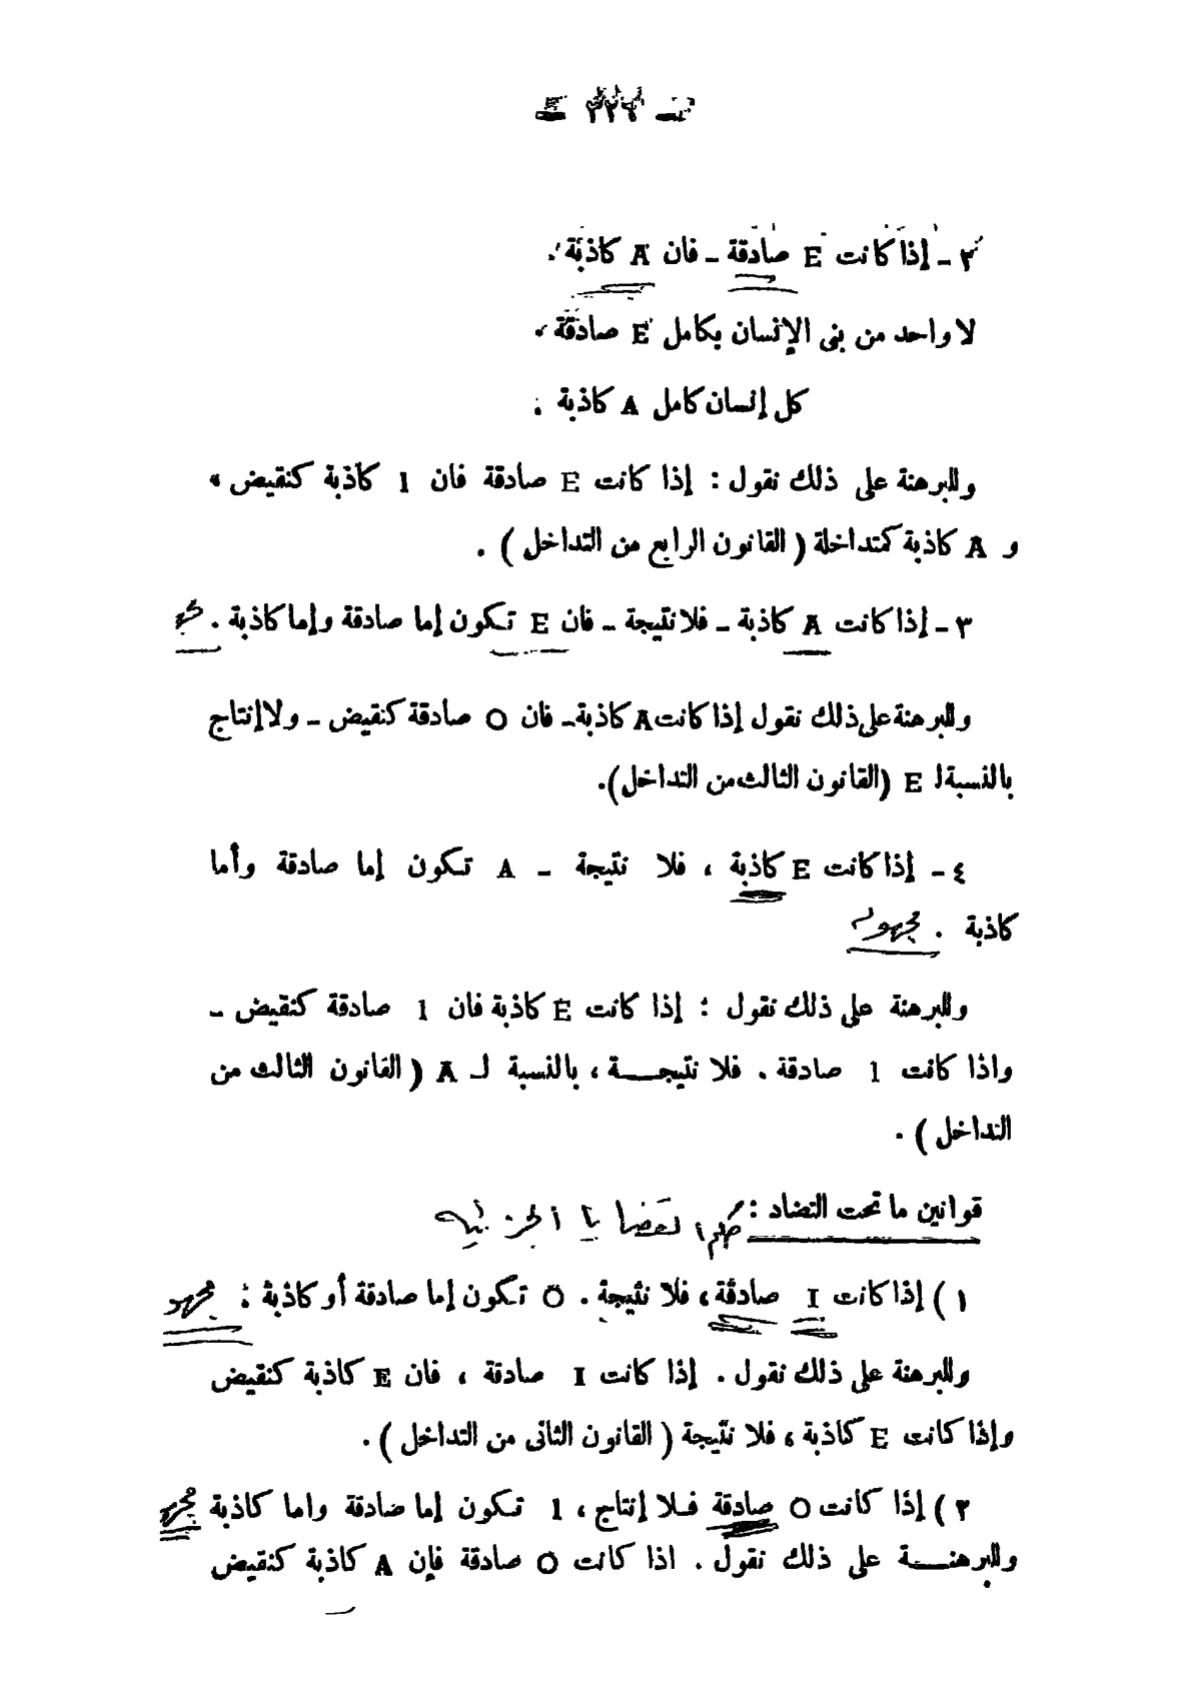 ٢ - إذا كانت E صادقة - فان A كاذبة .
لا واحد من بنى الإنسان بكامل E صادقة .
كل إنسان كامل A كاذبة .
وللبرهنة على ذلك نقول : إذا كانت E صادقة فان 1 كاذبة كنقيض ،
و A كاذبة كمتداخلة ( القانون الرابع من التداخل ) .
٣ - إذا كانت A كاذبة - فلا نتيجة - فان E تكون إما صادقة وإما كاذبة .
وللبرهنة على ذلك نقول إذا كانت A كاذبة - فان O صادقة كنقيض - ولا إنتاج
بالنسبة لـ E (القانون الثالث من التداخل).
٤ - إذا كانت E كاذبة ، فلا نتيجة - A تكون إما صادقة وأما
كاذبة . مجهولة
وللبرهنة على ذلك نقول : إذا كانت E كاذبة فان 1 صادقة كنقيض -
واذا كانت 1 صادقة . فلا نتيجــة ، بالنسبة لـ A ( القانون الثالث من
التداخل ) .
قوانين ما تحت التضاد :
١ ) إذا كانت I صادقة ، فلا نتيجة . O تكون إما صادقة أو كاذبة :
وللبرهنة على ذلك نقول . إذا كانت I صادقة ، فان E كاذبة كنقيض
وإذا كانت E كاذبة ، فلا نتيجة ( القانون الثانى من التداخل ) .
٢ ) إذا كانت O صادقة فـلا إنتاج ، 1 تكون إما صادقة واما كاذبة
وللبرهنــة على ذلك نقول . اذا كانت O صادقة فإن A كاذبة كنقيض